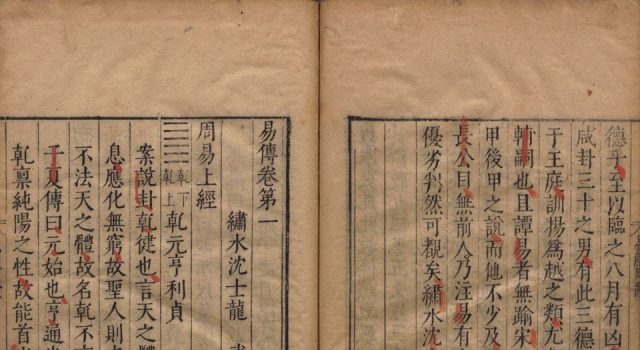 德乎至以臨之八月有凶
咸卦三十之男有此三德
于王庭訓揚爲越之類尤
嗣也且譚易者無踰宋
甲後甲之說而他不少及
長公目無前人乃注易有
優劣判然可覩矣繡水沈
易傳卷第一
繡水沈士龍
周易上經
乾下乾上乾元亨利貞
案說卦乾健也言天之體
息應化無窮故聖人則
不法天之體故名乾不
子夏傳曰元始也亨通
乾禀純陽之性故能首